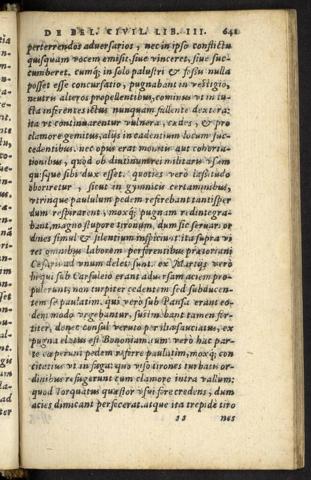 DE BEL. CIVIL. LIB. III. 641
perterrendos aduersarios, nec in ipso conflictu
quisquam vocem emisit, siue vinceret, siue suc-
cumberet. cumq; in solo palustri & fossis nulla
posset esse concursatio, pugnabant in vestigio,
neutris alteros propellentibus, cominus vt in lu-
cta inferentes ictus nunquam fallente dextera:
ita vt continuarentur vulnera, cædes, & pro
clamore gemitus, alijs in cadentium locum suc-
cedentibus. nec opus erat monitu aut cohorta-
tionibus, quòd ob diutinum rei militaris vsum
quisque sibi dux esset. quoties verò lassitudo
oboriretur, sicut in gymnicis certaminibus,
vtrinque paululum pedem referebant tantisper
dum respirarent, moxq; pugnam redintegra-
bant, magno stupore tironum, dum sic seruari or
dines simul & silentium inspiciunt. ita supra vi
res omnibus laborem perferentibus prætoriani
Cæsaris ad vnum deleti sunt. ex Martijs verò
hi qui sub Carsuleio erant aduersam aciem pro-
pulerunt, non turpiter cedentem sed subducen-
tem se paulatim. qui verò sub Pansa erant eo-
dem modo vrgebantur, sustinebant tamen for-
titer, donec consul veruto per ilia sauciatus, ex
pugna elatus est Bononiam. tum verò hac par-
te cœperunt pedem referre paulatim, moxq; con
citatius vt in fuga: quo viso tirones turbatis or-
dinibus refugerunt cum clamore intra vallum:
quod Torquatus quæstor vsui fore credens, dum
acies dimicant perfecerat. atque ita trepidè tiro
ss nes